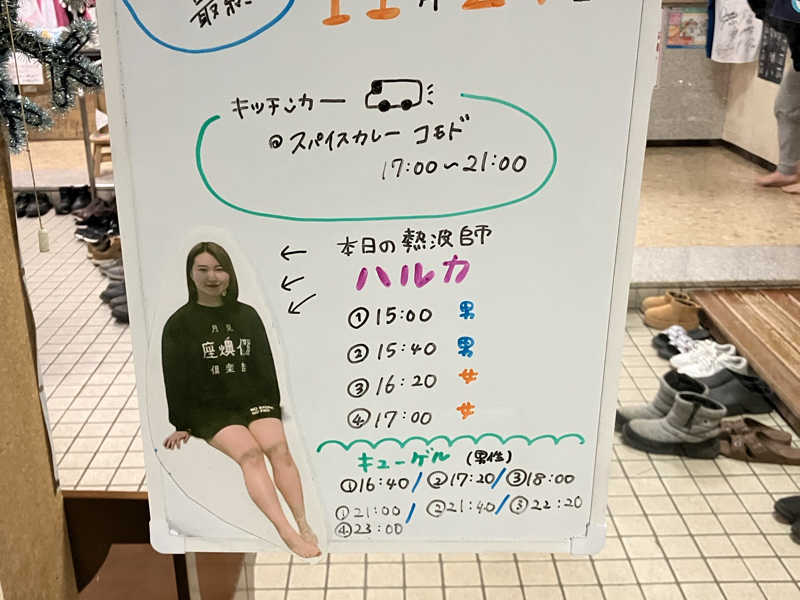 最終
11月
キッチンカー
@スパイスカレー コモド
17:00〜21:00
← 本日の熱波師
← ハルカ
①15:00 男
②15:40 男
③16:20 女
④17:00 女
座燠
倶楽部
キューゲル (男性)
①16:40/②17:20/③18:00
①21:00/②21:40/③22:20
④23:00